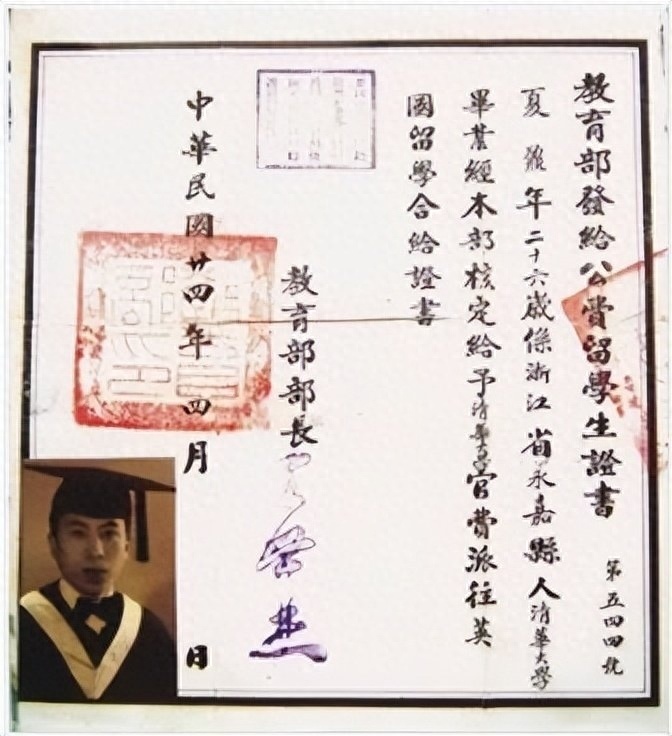 教育部發給公費留學生證書
第五四四號
夏鼐年二十六歲係浙江省永嘉縣人清華大學
畢業經本部核定給予清華官費派往英
國留學合給證書
教育部部長
中華民國廿四年四月 日